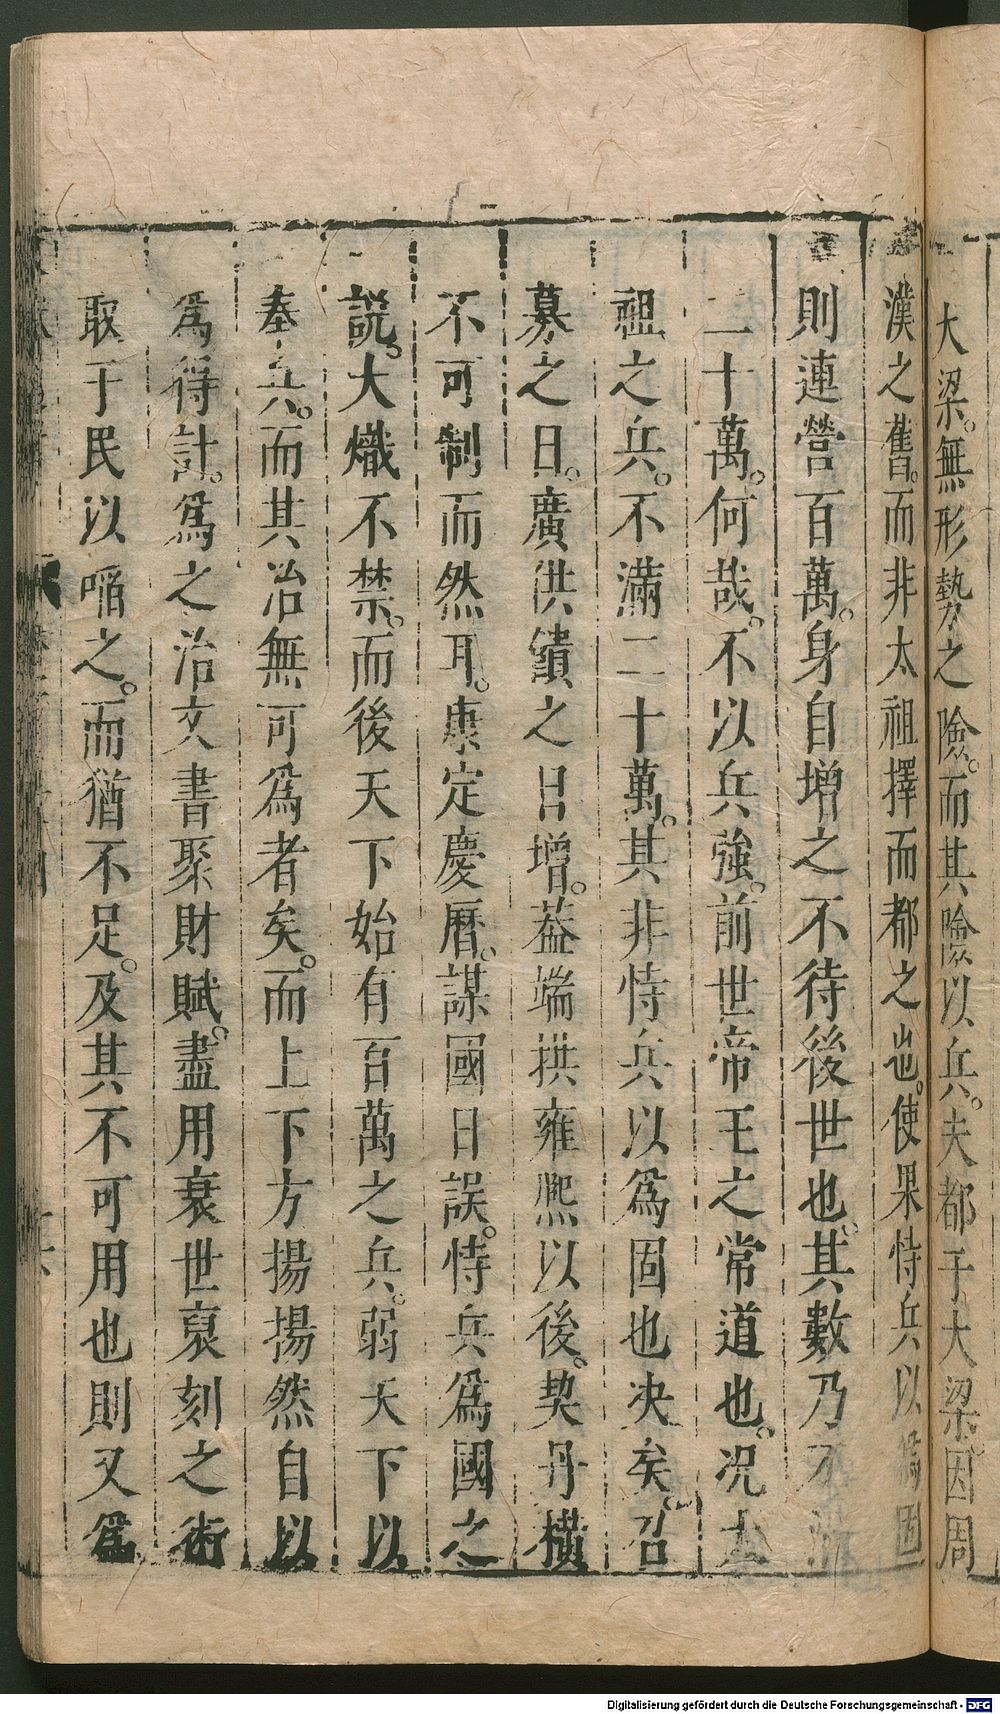 大梁。無形勢之險。而其險以兵。夫都于大梁。因周
漢之舊。而非太祖擇而都之也。使果恃兵以爲固
則連營百萬。身自增之不待後世也。其數乃不滿
二十萬。何哉。不以兵強。前世帝王之常道也。况太
祖之兵。不滿二十萬。其非恃兵以爲固也决矣。召
募之日。廣供饋之日增。葢端拱雍熙以後。契丹橫
不可制而然耳。康定慶曆。謀國日誤。恃兵爲國之
説。大熾不禁。而後天下始有百萬之兵。弱天下以
奉兵。而其治無可爲者矣。而上下方揚揚然自以
爲得計。爲之治文書聚財賦。盡用衰世裒刻之術
取于民以啗之。而猶不足。及其不可用也則又爲
Digitalisierung gefördert durch die Deutsche Forschungsgemeinschaft - DFG